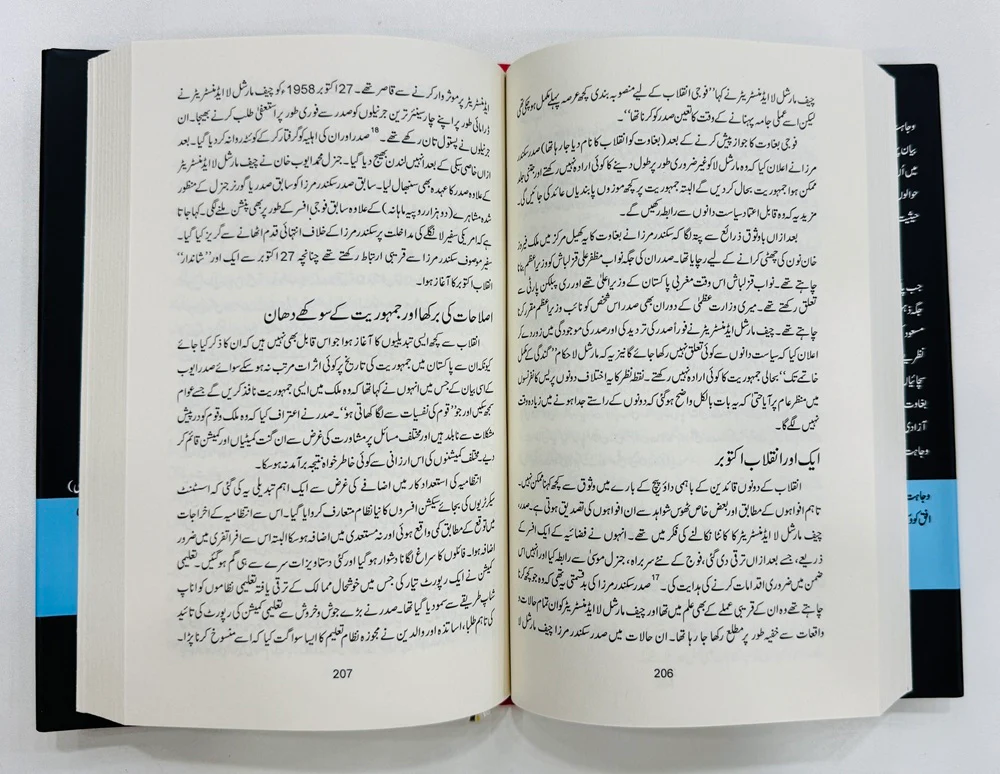 چیف مارشل لا ایڈمنسٹریٹر نے کہا ”فوجی انقلاب کے لیے منصوبہ بندی کچھ عرصہ پہلے مکمل ہو چکی تھی
لیکن اسے عملی جامہ پہنانے کے وقت کا تعین صدر کو کرنا تھا“۔
فوجی بغاوت کا جواز پیش کرنے کے بعد (بغاوت کو انقلاب کا نام دیا جا رہا تھا) صدر سکندر
مرزا نے اعلان کیا کہ وہ مارشل لا کو غیر ضروری طور پر طول دینے کا کوئی ارادہ نہیں رکھتے اور جتنی جلد
ممکن ہوا جمہوریت بحال کر دیں گے البتہ جمہوریت پر کچھ موزوں پابندیاں عائد کی جائیں گی۔
مزید یہ کہ وہ قابل اعتماد سیاست دانوں سے رابطہ رکھیں گے۔
بعد ازاں باوثوق ذرائع سے پتہ لگا کہ سکندر مرزا نے بغاوت کا یہ کھیل مرکز میں ملک فیروز
خان نون کی چھٹی کرانے کے لیے رچایا تھا۔ صدر ان کی جگہ نواب مظفر علی قزلباش کو وزیراعظم بنانا
چاہتے تھے۔ نواب قزلباش اس وقت مغربی پاکستان کے وزیر اعلیٰ تھے اور ری پبلکن پارٹی سے
تعلق رکھتے تھے۔ میری وزارت عظمیٰ کے دوران بھی صدر اس شخص کو نائب وزیراعظم مقرر کرنا
چاہتے تھے۔ چیف مارشل لا ایڈمنسٹریٹر نے فوراً صدر کی تردید کی اور صدر کی موجودگی میں زور دے کر
اعلان کیا کہ سیاست دانوں سے کوئی تعلق نہیں رکھا جائے گا نیز یہ کہ مارشل لا حکام ”گندگی کے مکمل
خاتمے تک“ بحالی جمہوریت کا کوئی ارادہ نہیں رکھتے۔ نقطہ نظر کا یہ اختلاف دونوں پریس کانفرنسوں
میں منظر عام پر آیا حتیٰ کہ یہ بات بالکل واضح ہو گئی کہ دونوں کے راستے جدا ہونے میں زیادہ وقت
نہیں لگے گا۔
ایک اور انقلاب اکتوبر
انقلاب کے دونوں قائدین کے باہمی داؤ پیچ کے بارے میں وثوق سے کچھ کہنا ممکن نہیں۔
تاہم افواہوں کے مطابق اور بعض خاص ٹھوس شواہد سے ان افواہوں کی تصدیق ہوتی ہے۔ صدر
چیف مارشل لا ایڈمنسٹریٹر کا کانٹا نکالنے کی فکر میں تھے۔ انہوں نے فضائیہ کے ایک افسر کے
ذریعے، جسے بعد ازاں ترقی دی گئی، فوج کے نئے سربراہ، جنرل موسیٰ سے رابطہ کیا اور انہیں اس
ضمن میں ضروری اقدامات کرنے کی ہدایت کی۔17 صدر سکندر مرزا کی بدقسمتی یہ تھی کہ وہ جو کچھ کرنا
چاہتے تھے وہ ان کے قریبی عملے کے بھی علم میں تھا اور چیف مارشل لا ایڈمنسٹریٹر کو ان تمام حالات و
واقعات سے خفیہ طور پر مطلع رکھا جا رہا تھا۔ ان حالات میں صدر سکندر مرزا چیف مارشل لا
206
ایڈمنسٹریٹر پر موثر وار کرنے سے قاصر تھے۔ 27 اکتوبر 1958ء کو چیف مارشل لا ایڈمنسٹریٹر نے
ڈرامائی طور پر اپنے چار سینئر ترین جرنیلوں کو صدر سے فوری طور پر استعفیٰ طلب کرنے بھیجا۔ ان
جرنیلوں نے پستول تان رکھے تھے۔18 صدر اور ان کی اہلیہ کو گرفتار کر کے کوئٹہ روانہ کر دیا گیا۔ بعد
ازاں خاصی سبکی کے بعد انہیں لندن بھیج دیا گیا۔ جنرل محمد ایوب خان نے چیف مارشل لا ایڈمنسٹریٹر
کے علاوہ صدر کا عہدہ بھی سنبھال لیا۔ سابق صدر سکندر مرزا کو سابق صدر یا گورنر جنرل کے منظور
شدہ مشاہرے (دو ہزار روپیہ ماہانہ) کے علاوہ سابق فوجی افسر کے طور پر بھی پنشن ملنے لگی۔ کہا جاتا
ہے کہ امریکی سفیر لانگلے کی مداخلت پر سکندر مرزا کے خلاف انتہائی قدم اٹھانے سے گریز کیا گیا۔
سفیر موصوف سکندر مرزا سے قریبی ارتباط رکھتے تھے چنانچہ 27 اکتوبر سے ایک اور ”شاندار“
انقلاب اکتوبر کا آغاز ہوا۔
اصلاحات کی برکھا اور جمہوریت کے سوکھے دھان
انقلاب سے کچھ ایسی تبدیلیوں کا آغاز ہوا جو اس قابل بھی نہیں ہیں کہ ان کا ذکر کیا جائے
کیونکہ ان سے پاکستان میں جمہوریت کی تاریخ پر کوئی اثرات مرتب نہ ہو سکے سوائے صدر ایوب
کے اسی بیان کے جس میں انہوں نے کہا تھا کہ وہ ملک میں ایسی جمہوریت نافذ کریں گے جسے عوام
سمجھ سکیں اور جو ”قوم کی نفسیات سے لگا کھاتی ہو“۔ صدر نے اعتراف کیا کہ وہ ملک و قوم کو درپیش
مشکلات سے نابلد ہیں اور مختلف مسائل پر مشاورت کی غرض سے ان گنت کمیٹیاں اور کمیشن قائم کر
دیے۔ مختلف کمیشنوں کی اس ارزانی سے کوئی خاطر خواہ نتیجہ برآمد نہ ہو سکا۔
انتظامیہ کی استعداد کار میں اضافے کی غرض سے ایک اہم تبدیلی یہ کی گئی کہ اسسٹنٹ
سیکرٹریوں کی بجائے سیکشن افسروں کا نیا نظام متعارف کروایا گیا۔ اس سے انتظامیہ کے اخراجات
میں توقع کے مطابق کمی واقع ہوئی اور نہ مستعدی میں اضافہ ہو سکا البتہ اس سے افراتفری میں ضرور
اضافہ ہوا۔ فائلوں کا سراغ لگانا دشوار ہو گیا اور کئی دستاویزات سرے سے ہی گم ہو گئیں۔ تعلیمی
کمیشن نے ایک رپورٹ تیار کی جس میں خوشحال ممالک کے ترقی یافتہ تعلیمی نظاموں کو اناپ
شناپ طریقے سے سمو دیا گیا تھا۔ صدر نے بڑے جوش و خروش سے تعلیمی کمیشن کی رپورٹ کی تائید
کی تاہم طلبا، اساتذہ اور والدین نے مجوزہ نظام تعلیم کا ایسا سواگت کیا کہ اسے منسوخ کرنا پڑا۔
207
وجاہت
بیان
میں
حوالوں
حیثیت
جب
جگہ
مسعود
نظر
بغاوت
آزادی
وجاہت
وجاہت
افق